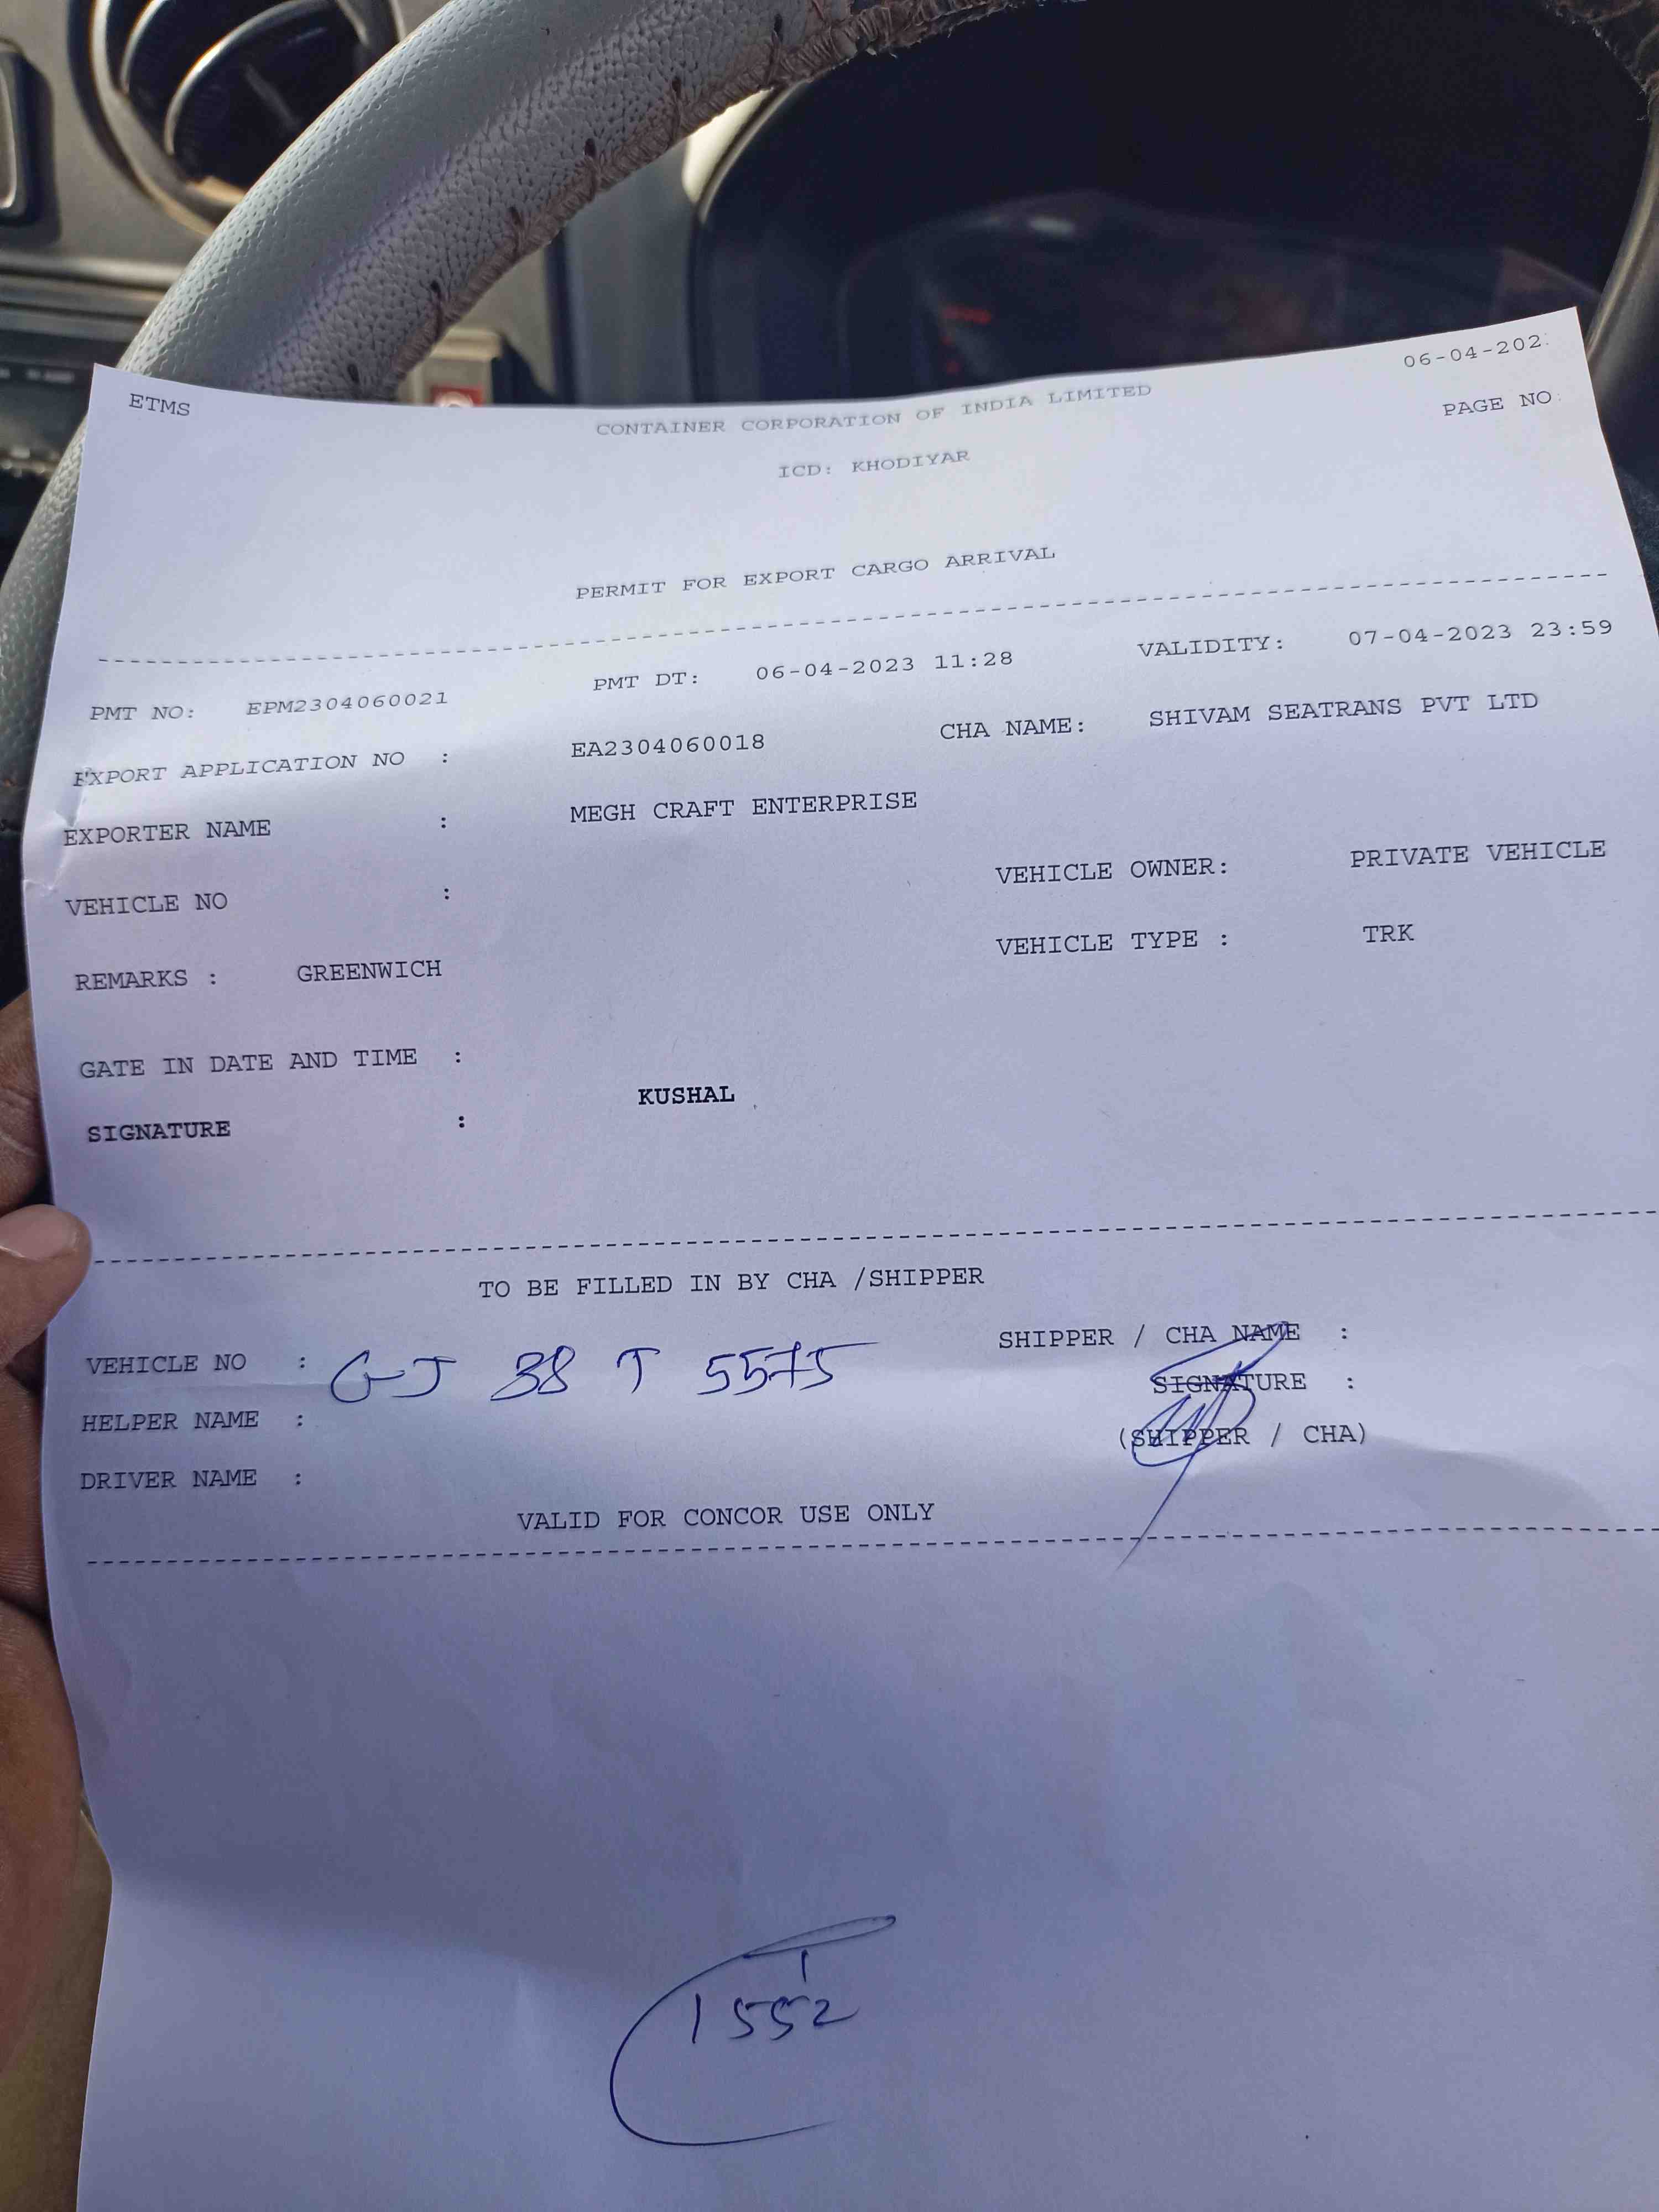 ETMS CONTAINER CORPORATION OF INDIA LIMITED 06-04-202
ICD: KHODIYAR PAGE NO:
PERMIT FOR EXPORT CARGO ARRIVAL
PMT NO: EPM2304060021 PMT DT: 06-04-2023 11:28 VALIDITY: 07-04-2023 23:59
EXPORT APPLICATION NO : EA2304060018 CHA NAME: SHIVAM SEATRANS PVT LTD
EXPORTER NAME : MEGH CRAFT ENTERPRISE
VEHICLE NO : VEHICLE OWNER: PRIVATE VEHICLE
REMARKS : GREENWICH VEHICLE TYPE : TRK
GATE IN DATE AND TIME :
SIGNATURE : KUSHAL
TO BE FILLED IN BY CHA /SHIPPER
VEHICLE NO : GJ 38 T 5575 SHIPPER / CHA NAME :
HELPER NAME : SIGNATURE :
DRIVER NAME : (SHIPPER / CHA)
VALID FOR CONCOR USE ONLY
1552